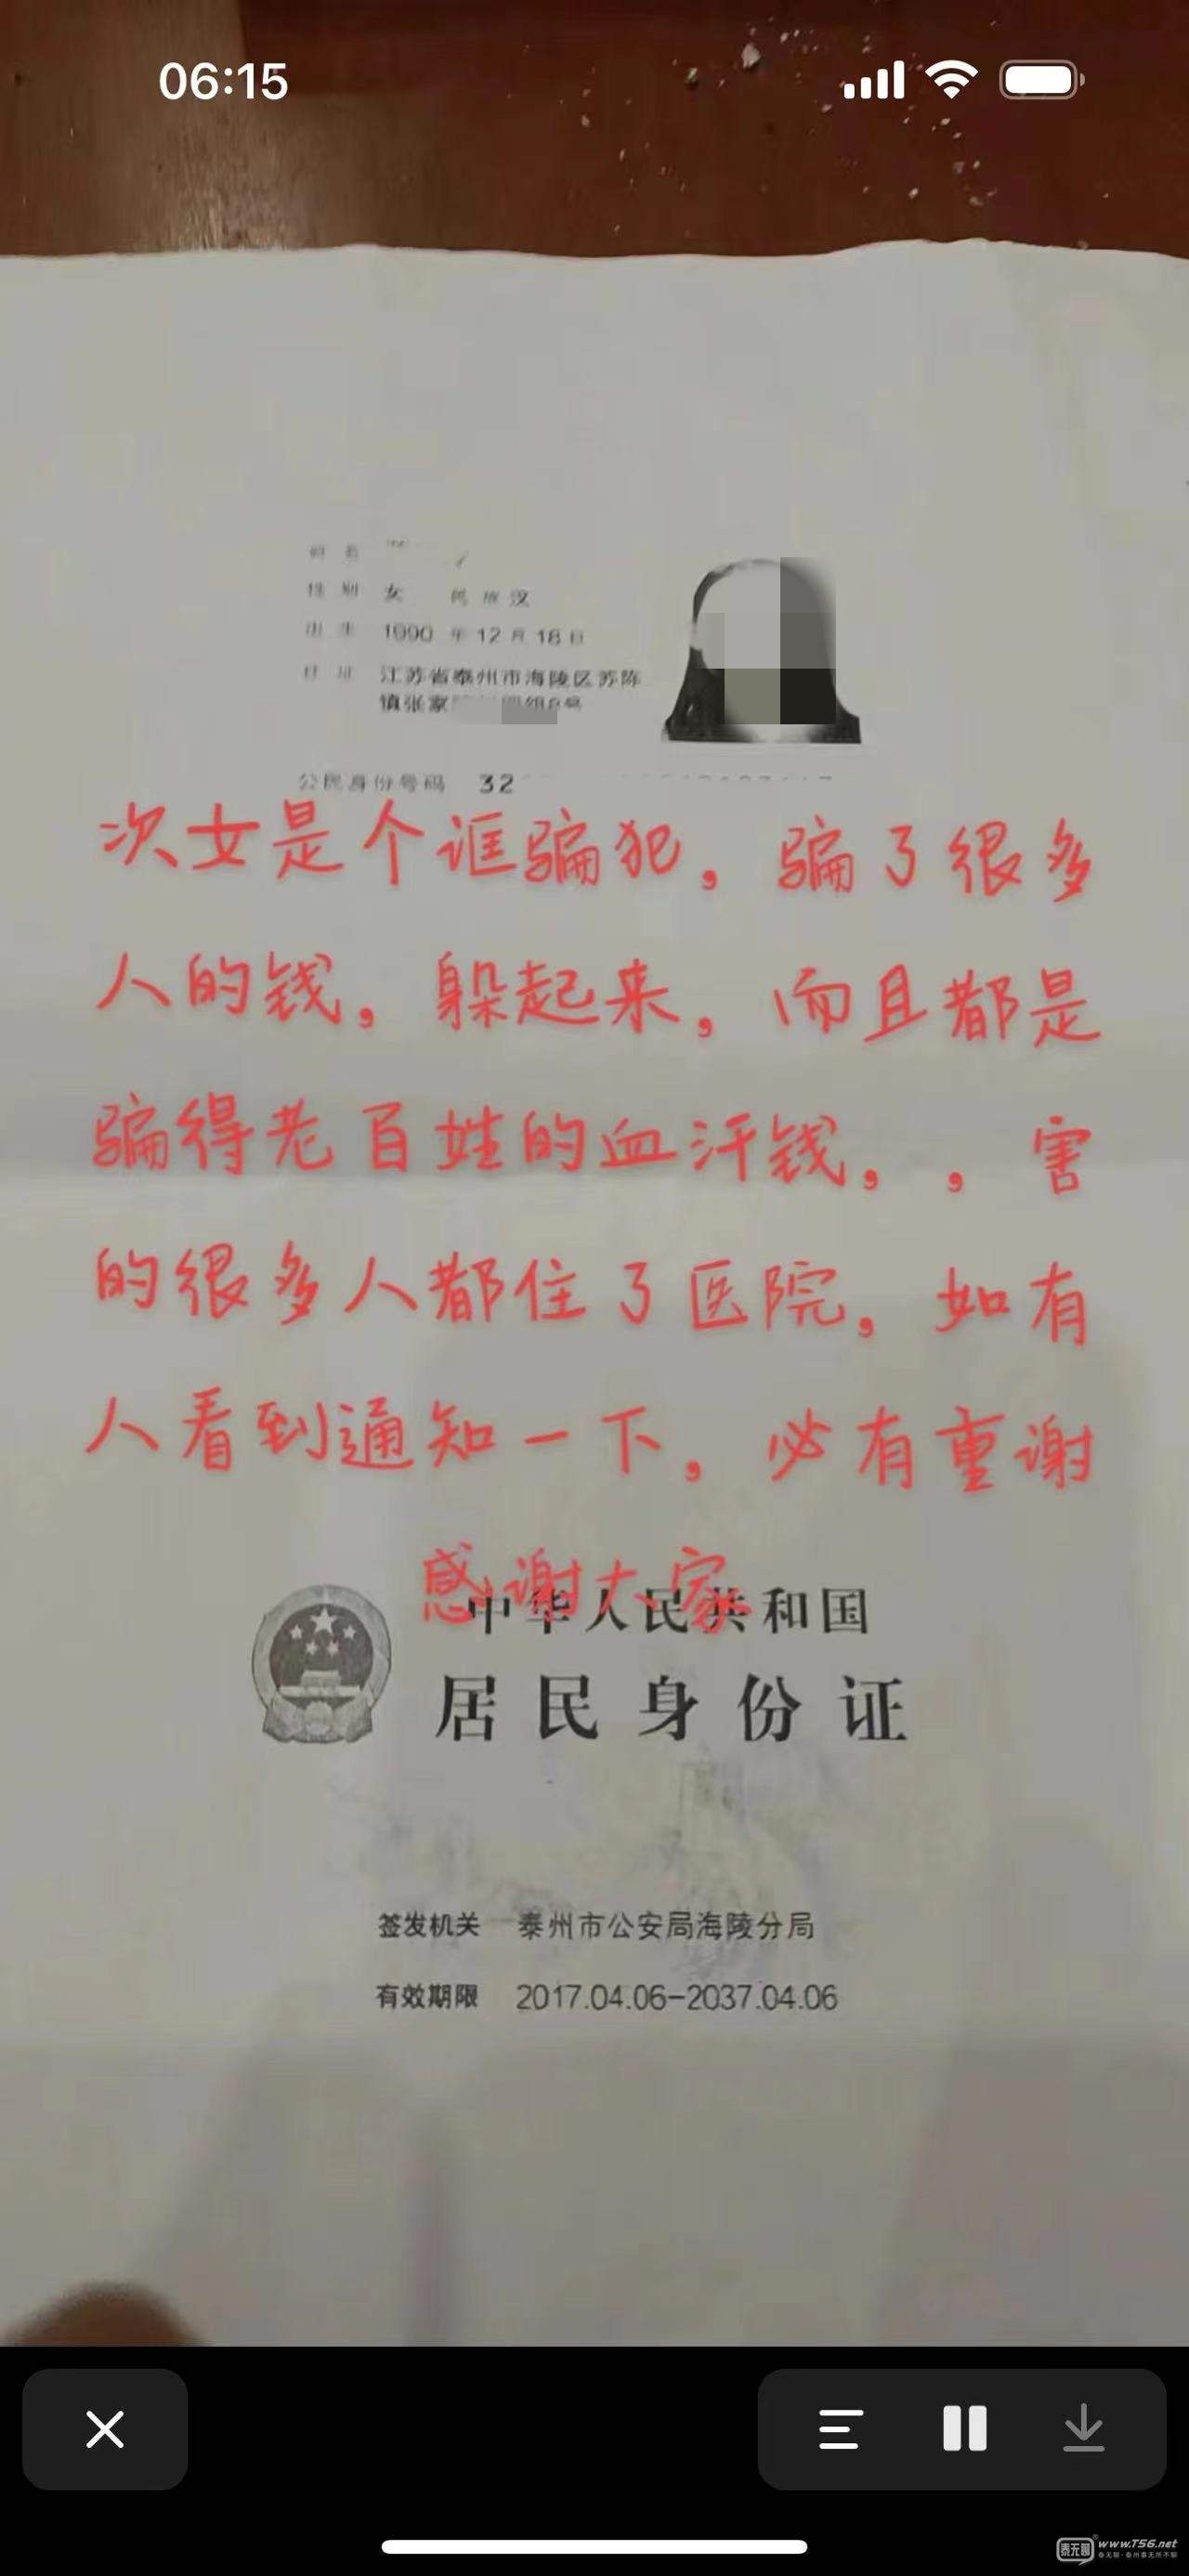 06:15
性别 女 民族 汉
出生 1990 年 12 月 18 日
住址 江苏省泰州市海陵区苏陈
镇张家
公民身份号码 32
次女是个诓骗犯，骗了很多
人的钱，躲起来，而且都是
骗得老百姓的血汗钱，，害
的很多人都住了医院，如有
人看到通知一下，必有重谢
感谢大家
中华人民共和国
居民身份证
签发机关 泰州市公安局海陵分局
有效期限 2017.04.06-2037.04.06
泰无聊 www.T56.net
泰无聊·泰州泰无所不聊